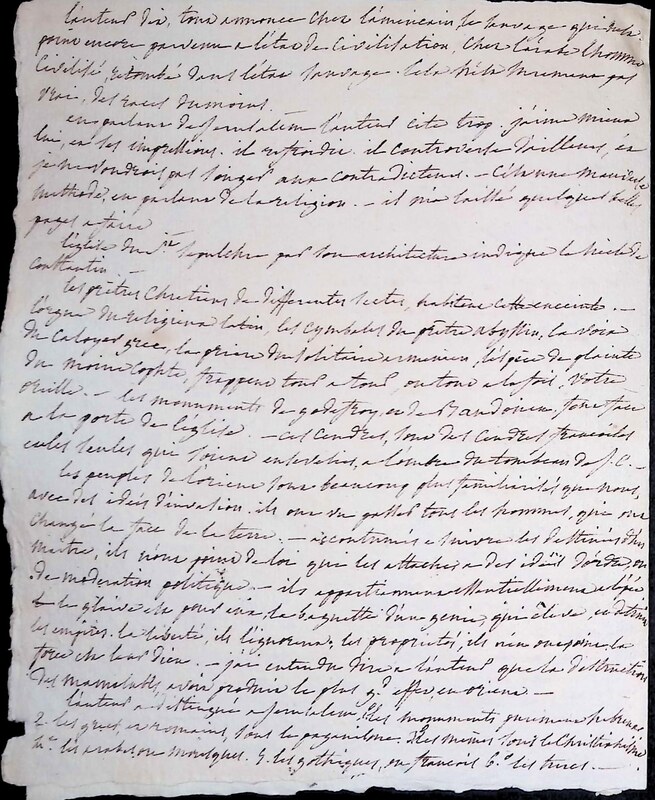 l'auteur dit, tout annonce chez l'américain, le sauvage qui n'est
point encore parvenu a l'état de civilisation, chez l'arabe l'homme
civilisé, retombé dans l'état sauvage. cela n'est pas
vrai, des races du moins.
en parlant de jerusalem l'auteur cite trop. j'aime mieux
lui, et ses impressions. il refroidit. il controverse d'ailleurs, et
je ne voudrois pas songer aux contradicteurs. – c'est une mauvaise
methode, en parlant de la religion. – il m'a laissé quelques belles
pages a faire
l'église du st sepulchre par son architecture indique le siecle de
constantin –
les prêtres chretiens de differentes sectes, habitent cette enceinte –
l'orgue du religieux latin, les cymbales du prêtre abyssin, la voix
du caloyer grec, la priere du solitaire armenien, l'espèce de plainte
du moine cophte, frappent tour a tour, ou tout a la fois, votre
oreille. – les monuments de godefroy, et de Baudouin, font face
a la porte de l'eglise. – ces cendres, sont des cendres françoises
et les seules qui soient ensevelies, a l'ombre du tombeau de J. C. –
les peuples de l'orient sont beaucoup plus familiarisés que nous,
avec des idées d'invasion. ils ont vu passer tous les hommes, qui ont
changé la face de la terre. – accoutumés a suivre les destinées d'un
maitre, ils n'ont point de loi qui les attache a des idées d'ordre, ou
de moderation politique – ils appartiennent essentiellement a l'épée
le glaive est pour eux, la baguette d'un genie, qui éleve, et détruit
les empires. la liberté, ils l'ignorent. les proprietés, ils n'en ont point. la
force est leur dieu. – j'ai entendu dire a l'auteur que la destruction
des mammelucks, avoit produit le plus gd effet, en orient –
l'auteur a distingué a jerusalem 1° les monuments purement hebreux
2. les grecs, et romains, sous le paganisme. 3° les mêmes sous le christianisme
4°. les arabes ou moresques. 5. les gothiques, ou françois 6.° les turcs –